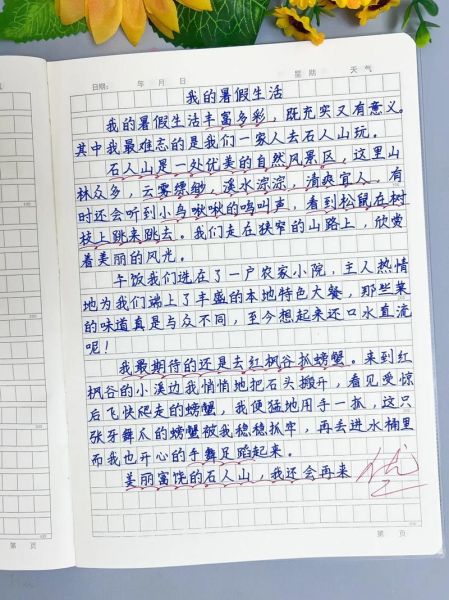 日期: 年 月 日 星期 天气
我的暑假生活
我的暑假生活丰富多彩，既充实又有意义。
其中我最难忘的是我们一家人去石人山玩。
石人山是一处优美的自然风景区，这里山
林众多，云雾缥缈，溪水淙淙，清爽宜人。有
时还会听到小鸟啾啾的鸣叫声，看到松鼠在树
枝上跳来跳去。我们走在狭窄的山路上，欣赏
着美丽的风光。
午饭我们选在了一户农家小院，主人热情
地为我们端上了丰盛的本地特色大餐，那些菜
的味道真是与众不同，至今想起来还口水直流
呢！
我最期待的还是去红枫谷抓螃蟹。来到红
枫谷的小溪边我悄悄地把石头搬开，看见受惊
后飞快爬走的螃蟹，我便猛地用手一抓，这只
张牙舞爪的螃蟹被我稳稳抓牢，再丢进水桶里
而我也开心的手舞足蹈起来。
美丽富饶的石人山，我还会再来
优
第 页
第 页